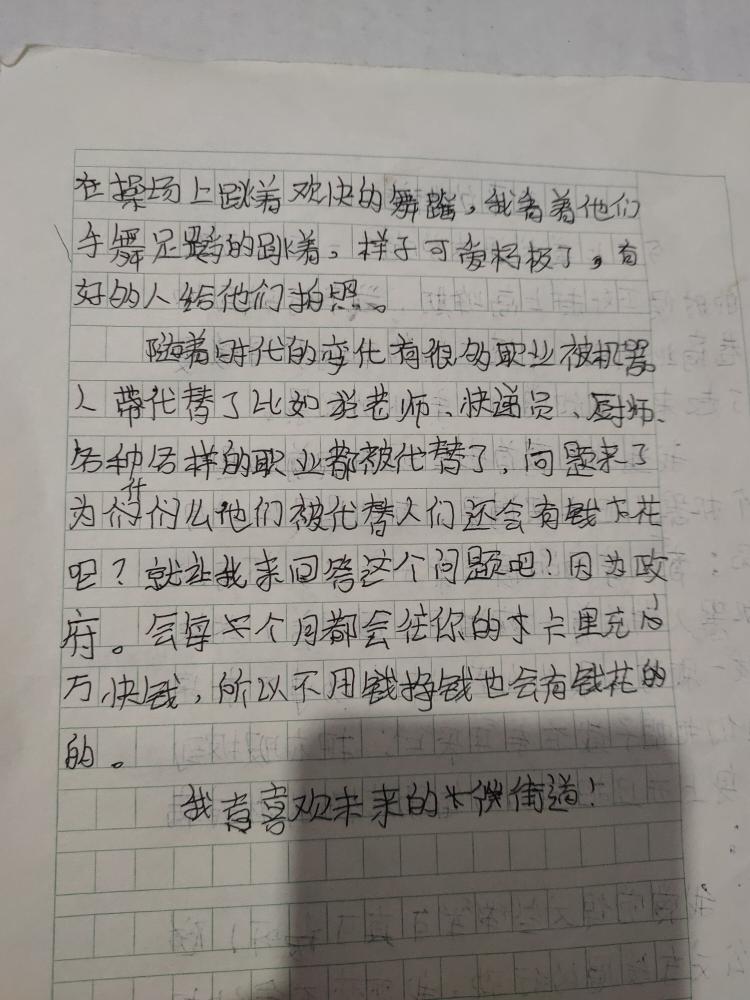 在操场上跳着欢快的舞蹈，我看着他们
手舞足蹈的跳着，样子可爱极了，有
好的人给他们拍照。
随着时代的变化有很多职业被机器
人带代替了比如说老师、快递员、厨师、
各种各样的职业都被代替了，问题来了
为什么他们被代替人们还会有钱花
吧？就让我来回答这个问题吧！因为政
府。会每个月都会往你的卡里充
万快钱，所以不用钱挣钱也会有钱花的
的。
我喜欢未来的街道！